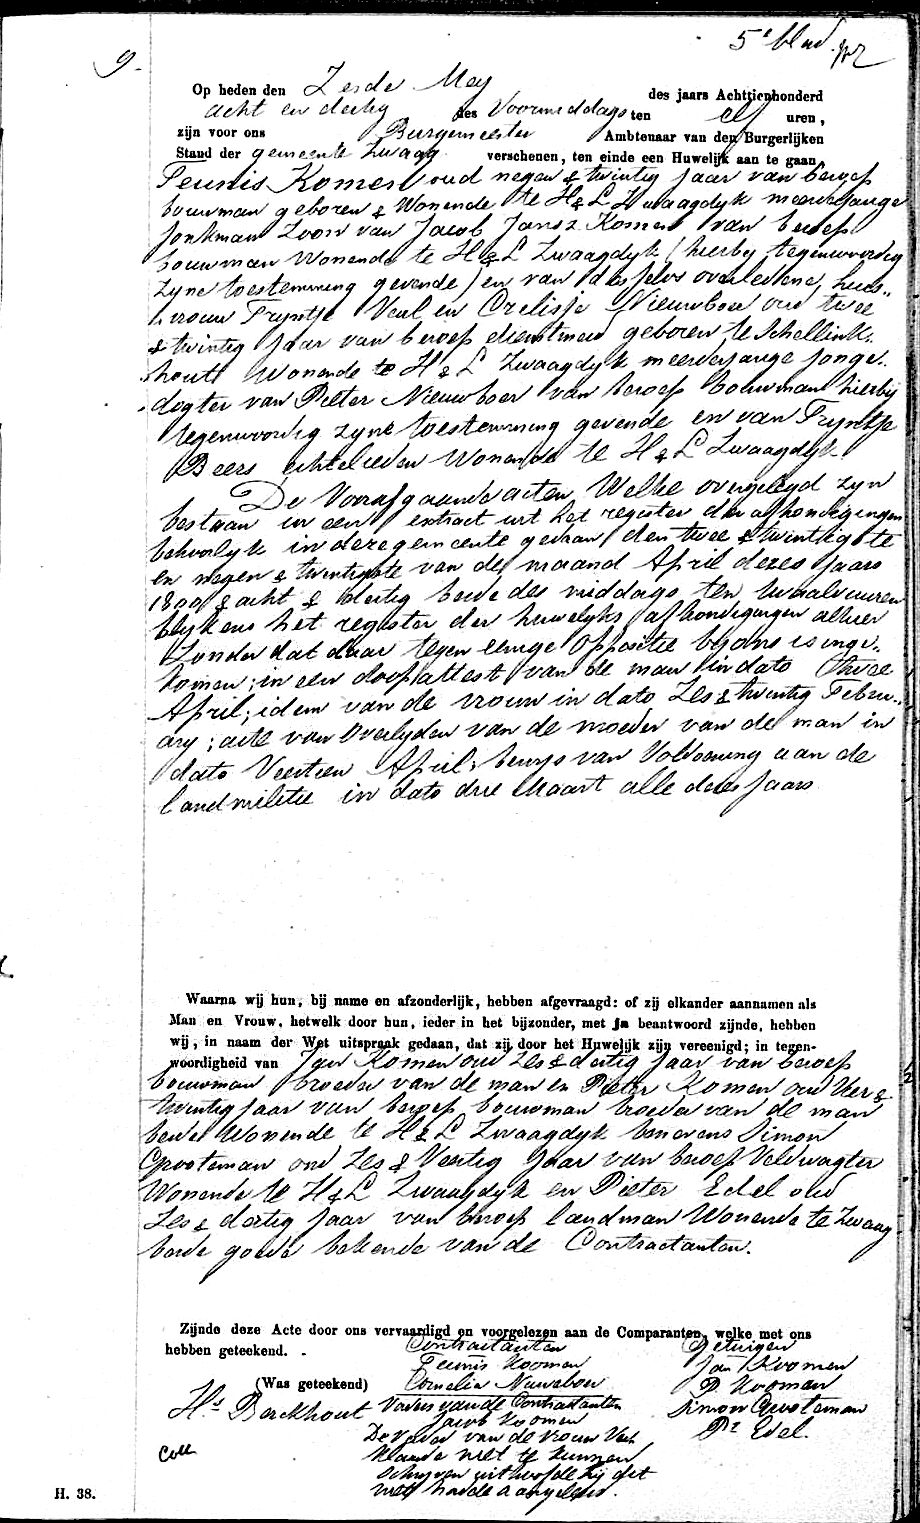 5e blad
9.
Op heden den Zesde Mey des jaars Achttienhonderd
acht en dertig des Voormiddags ten elf uren,
zijn voor ons Burgemeester Ambtenaar van den Burgerlijken
Stand der gemeente Zwaag verschenen, ten einde een Huwelijk aan te gaan,
Teunis Komen oud negen & twintig Jaar van beroep
bouwman geboren & Wonende te H & L Zwaagdyk meerderjarige
Jonkman Zoon van Jacob Jansz Komen van beroep
bouwman Wonende te H & L Zwaagdyk (hierby tegenwoordig
zyne toestemming gevende) en van deszelvs overledene huis-
vrouw Tryntje Veul en Crelisje Nieuwboer oud twee
& twintig Jaar van beroep dienstmeid geboren te Schellink-
hout Wonende te H & L Zwaagdyk meerderjarige Jonge-
dogter van Pieter Nieuwboer van beroep bouwman hierby
tegenwoordig zyne toestemming gevende en van Tryntje
Beers echtelieden Wonende te H & L Zwaagdyk
De Voorafgaande acten, Welke overgelegd zyn
bestaan in een extract uit het register der afkondigingen
behoorlyk in deze gemeente gedaan den twee & twintigste
en negen & twintigste van de maand April dezes Jaars
1800 & acht & dertig beide des middags ten twaalf uuren
blykens het register der huwelyks afkondigingen alhier
Zonder dat daar tegen eenige oppositie by ons is inge-
komen; in een doop attest van de man in dato Twee
April; idem van de vrouw in dato Zes & twintig Febru-
ary; acte van Overlyden van de moeder van de man in
dato Veertien April; bewys van Voldoening aan de
landmilitie in dato drie Maart alle dezes Jaars
Waarna wij hun, bij name en afzonderlijk, hebben afgevraagd: of zij elkander aannamen als
Man en Vrouw, hetwelk door hun, ieder in het bijzonder, met ja beantwoord zijnde, hebben
wij, in naam der Wet uitspraak gedaan, dat zij door het Huwelijk zijn vereenigd; in tegen-
woordigheid van Jan Komen oud Zes & dertig Jaar van beroep
bouwman broeder van de man en Pieter Komen oud Vier &
twintig Jaar van beroep bouwman broeder van de man
beide Wonende te H & L Zwaagdyk benevens Simon
Grooteman oud Zes & Veertig Jaar van beroep Veldwagter
Wonende te H & L Zwaagdyk en Pieter Edel oud
Zes & dertig Jaar van beroep landman Wonende te Zwaag
beide goede bekende van de Contractanten.
Zijnde deze Acte door ons vervaardigd en voorgelezen aan de Comparanten, welke met ons
hebben geteekend.
Contractanten Getuigen
Teunis Kooman Jan Koomen
(Was geteekend) Cornelia Nieuwboer P. Kooman
Hs Berckhout Vaders van de Contractanten Simon Grooteman
Jacob Koomen Pr Edel.
De Vader van de vrouw Ver-
klaarde niet te kunnen
Schryven uit hoofde hij dit
niet hadde aangeleerd.
Coll
H. 38.